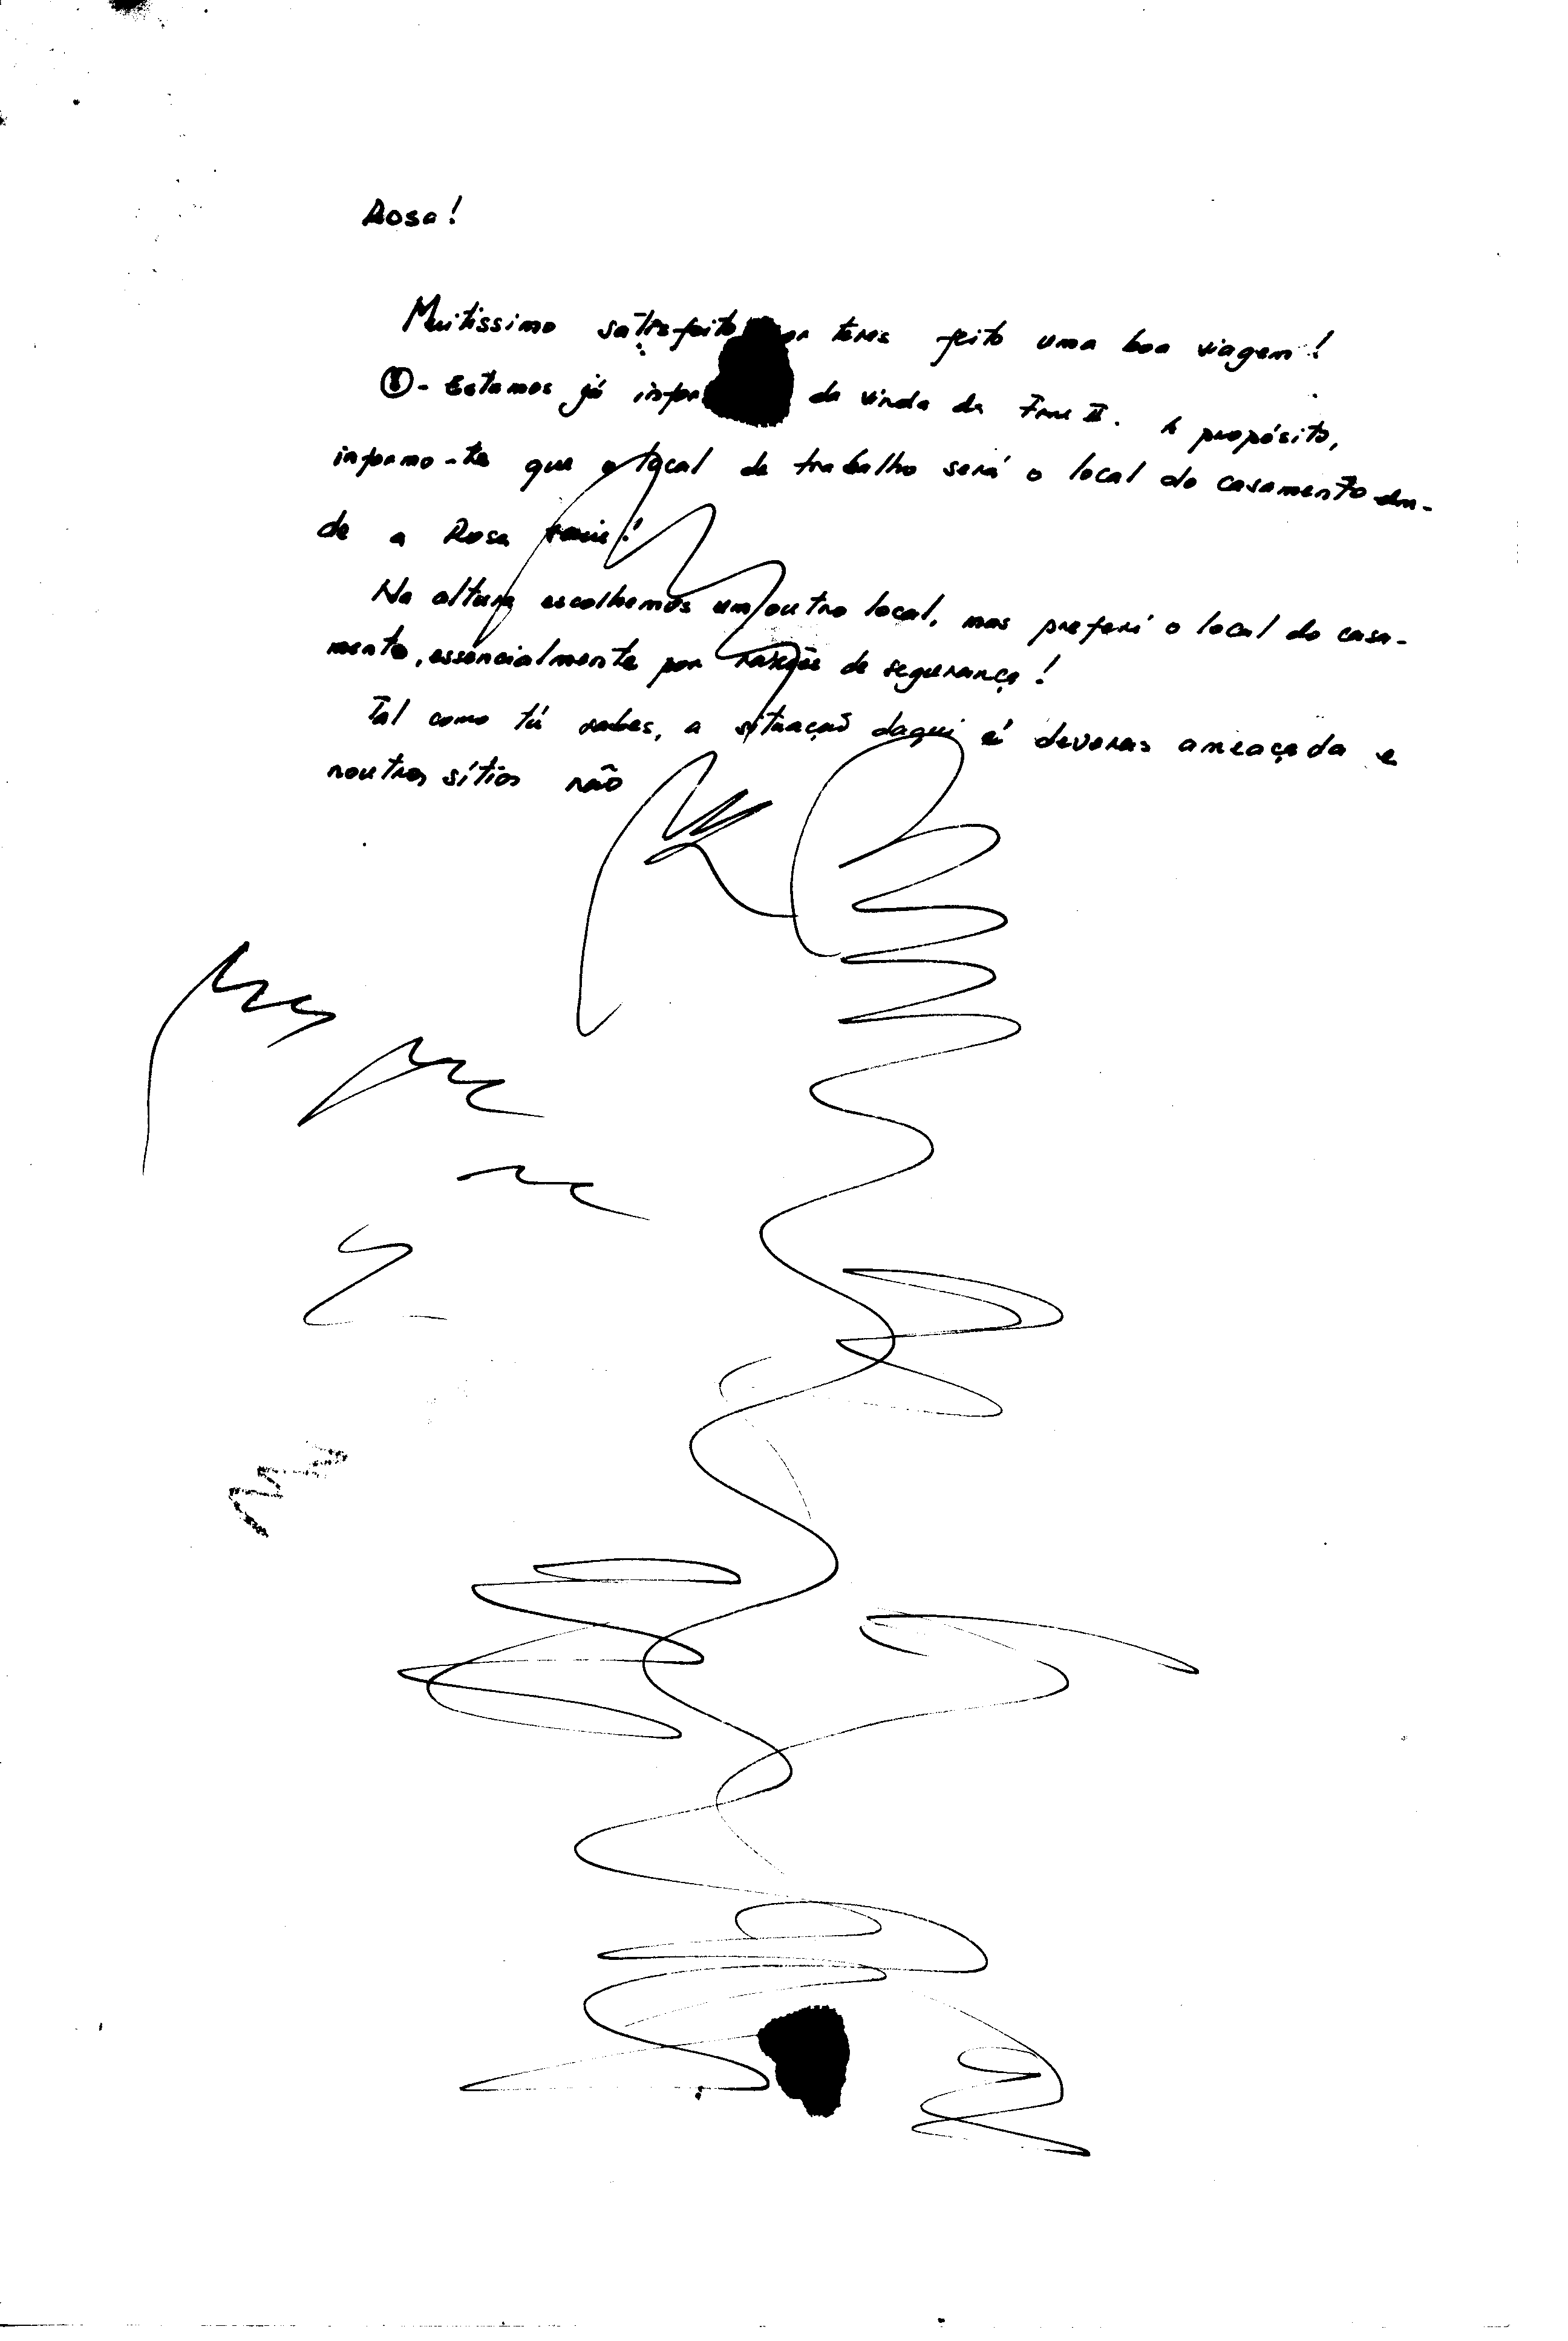 Rosa!
Muitissimo satisfeito por teres feito uma boa viagem!
- Estamos já infor da vinda da II. A propósito,
informo-te que o local de trabalho será o local do casamento on-
de a Rosa !
Na altura escolhemos um outro local, mas preferi o local do casa-
mento, essencialmente por razões de segurança!
Tal como tú sabes, a situação daqui é deveras ameaçada e
noutros sítios não